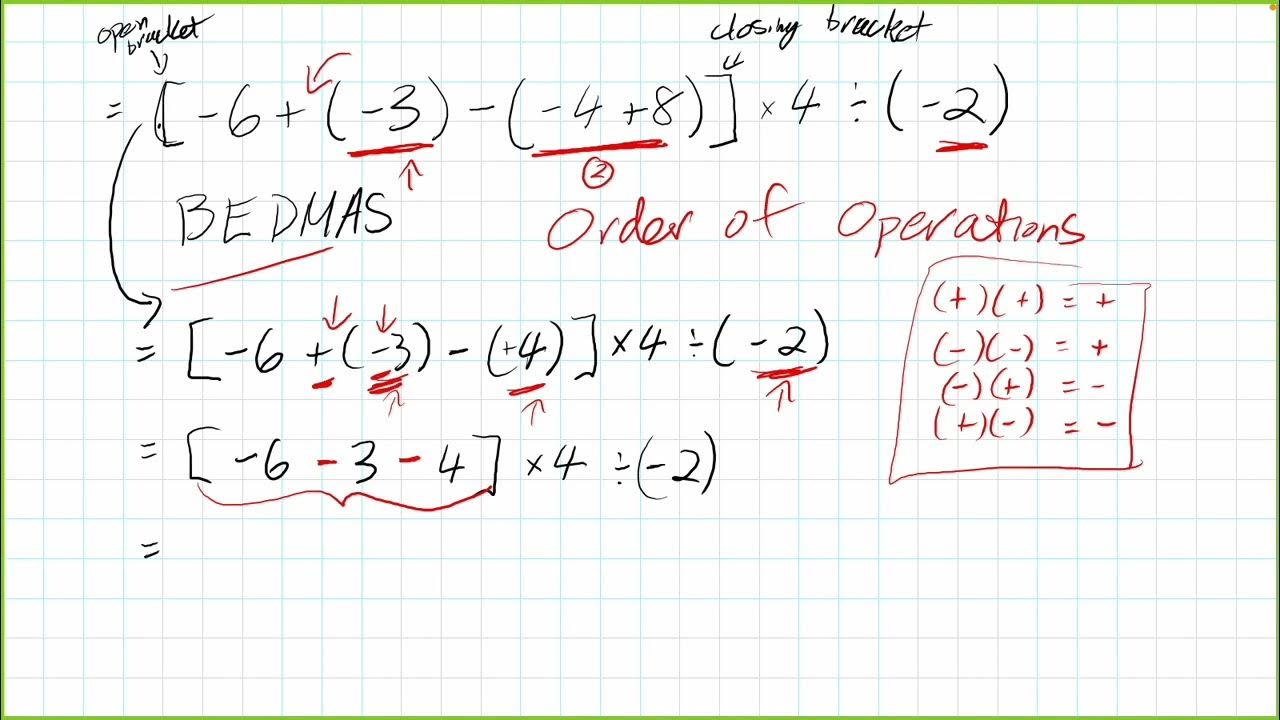 open bracket
closing bracket
= [ -6 + (-3) - (-4 +8) ] × 4 ÷ (-2)
②
BEDMAS
Order of Operations
(+)(+) = +
(-)(-) = +
(-)(+) = -
(+)(-) = -
= [ -6 + (-3) - (+4) ] × 4 ÷ (-2)
= [ -6 - 3 - 4 ] × 4 ÷ (-2)
=